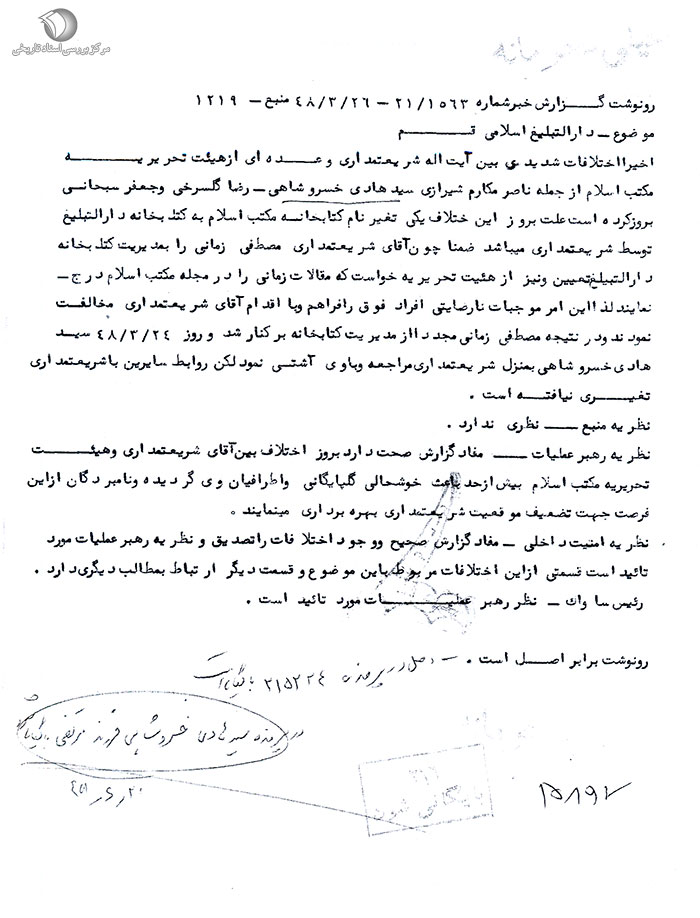 مرکز بررسی اسناد تاریخی
رونوشت گزارش خبر شماره ۲۱/۱۵۶۳ – ۴۸/۳/۲۶ منبع – ۱۲۱۹
موضوع – دارالتبلیغ اسلامی قم
اخیرا اختلافات شدیدی بین آیت اله شریعتمداری و عده ای ازهیئت تحریریه
مکتب اسلام از جمله ناصر مکارم شیرازی سید هادی خسروشاهی – رضا گلسرخی وجعفر سبحانی
بروزکرده است علت بروز این ختلاف یکی تغیر نام کتابخانه مکتب اسلام به کتابخانه دارالتبلیغ
توسط شریعتمداری میباشد ضمنا چون آقای شریعتمداری مصطفی زمانی را بمدیریت کتابخانه
دارالتبلیغ تعیین ونیز از هئیت تحریریه خواست که مقالات زمانی را در مجله مکتب اسلام درج –
نمایند لذا این امر موجبات نارضایتی افراد فوق رافراهم وبا اقدام آقای شریعتمداری مخالفت
نمودند ودر نتیجه مصطفی زمانی مجددا از مدیریت کتابخانه برکنار شد و روز ۴۸/۳/۲۴ سید
هادی خسروشاهی بمنزل شریعتمداری مراجعه وباوی آشتی نمود لکن روابط سایرین باشریعتمداری
تغیری نیافته است .
نظریه منبع – نظری ندارد .
نظریه رهبر عملیات – مفاد گزارش صحت دارد بروز اختلاف بین آقای شریعتمداری وهیئت
تحریریه مکتب اسلام بیش ازحد باعث خوشحالی گلپایگانی واطرافیان وی گردیده ونامبردگان ازاین
فرصت جهت تضعیف موقعیت شریعتمداری بهره برداری مینمایند .
نظریه امنیت داخلی – مفاد گزارش صحیح ووجود اختلافات راتصدیق و نظریه رهبر عملیات مورد
تائید است قسمتی ازاین اختلافات مربوط باین موضوع و قسمت دیگر ارتباط بمطالب دیگری دارد .
رئیس ساواک – نظر رهبر عملیات مورد تائید است .
رونوشت برابر اصل است . – اصل در پرونده ۲۱۵۲۲۴ بایگانی است
در پرونده سید هادی خسروشاهی فرزند مرتضی بایگانی
۳۱۶
بایگانی شود